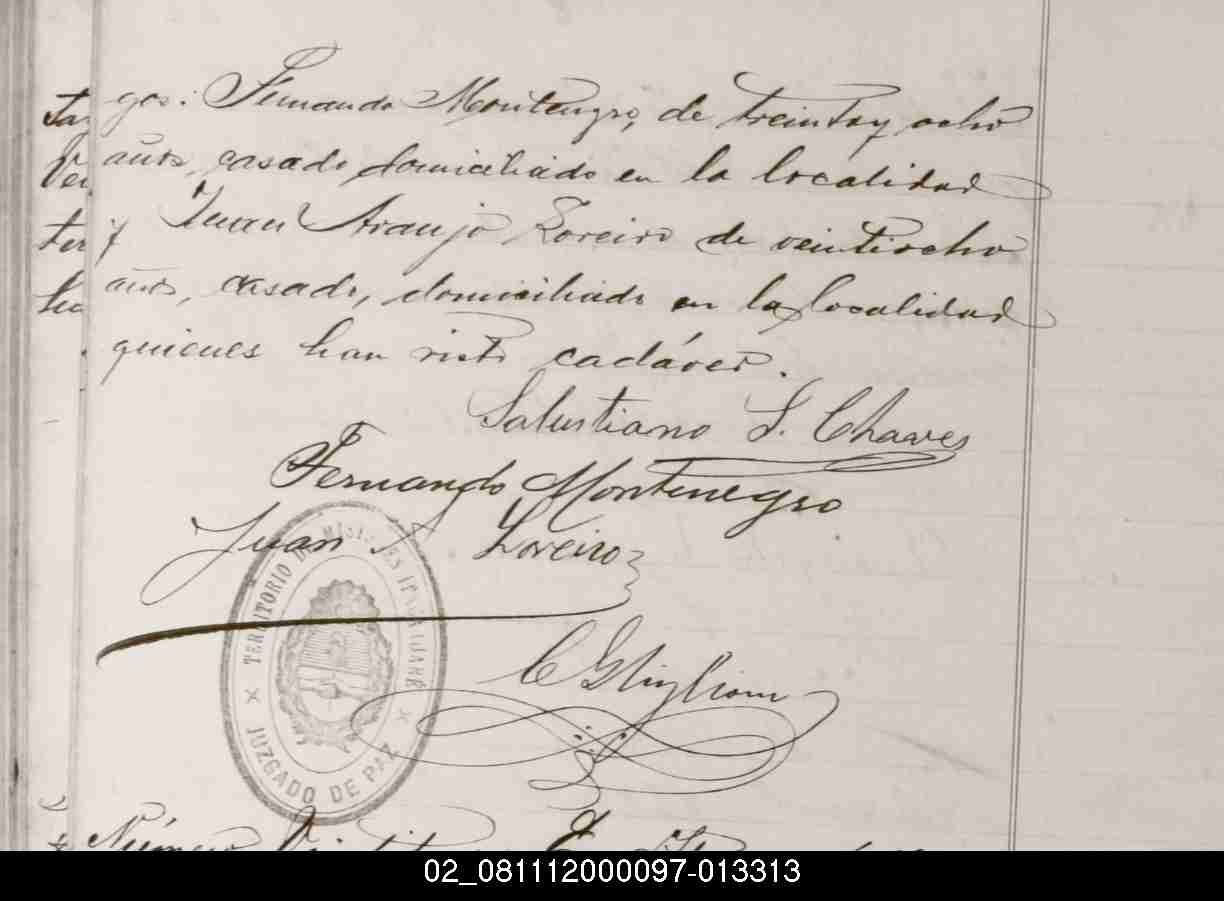 gos: Fernando Montenegro, de treinta y ocho
años, casado domiciliado en la localidad
y Juan Araujo Loreiro de veintiocho
años, casado, domiciliado en la localidad
quienes han visto cadáver.
Salustiano S. Chaves
Fernando Montenegro
Juan A Loreiro
TERRITORIO DE MISIONES
JUZGADO DE PAZ
Número
02_081112000097-013313